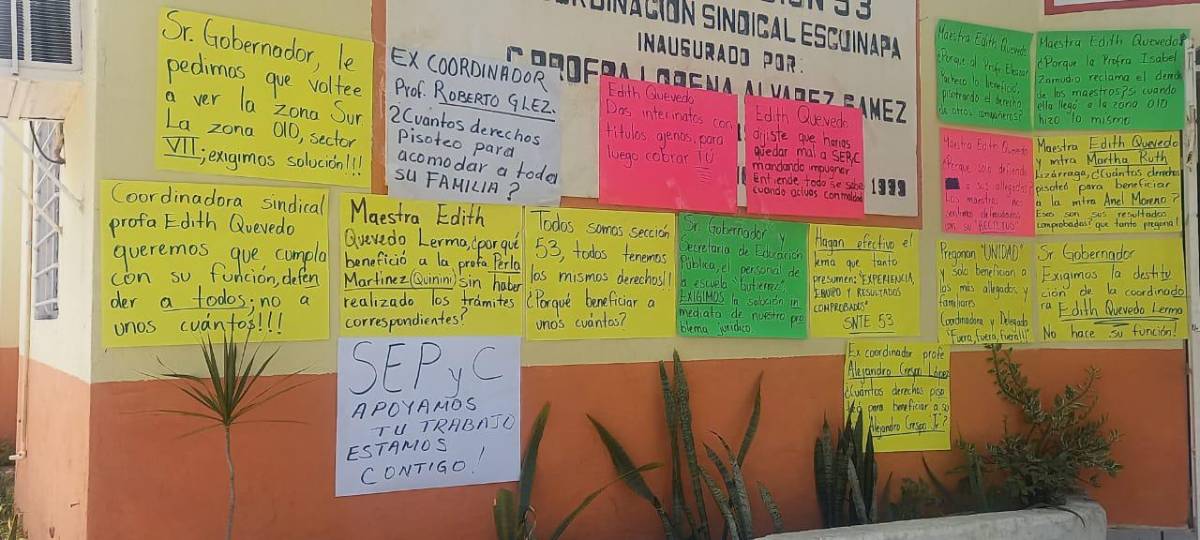 53
SINDICAL ESCUINAPA
INAUGURADO POR:
LORENA ALVAREZ GAMEZ
1999
Sr. Gobernador, le
pedimos que voltee
a ver la zona Sur
La zona 010, sector
VII; exigimos solución!!!
EX COORDINADOR
Prof. ROBERTO GLEZ.
¿Cuántos derechos
Pisoteo para
acomodar a toda
SU FAMILIA?
Edith Quevedo
Dos interinatos con
titulos ajenos, para
luego cobrar TÚ
Edith Quevedo
dijiste que harias
quedar mal a SEPyC
mandando impugnar
Entiende todo se sabe
cuando actúas con maldad
Maestra Edith Quevedo
¿Porque al Profr. Eleazar
Pacheco lo beneficio,
pisoteando el derecho
de otros compañeros?
Maestra Edith Quevedo
¿Porque la Profra Isabel
Zamudio reclama el derecho
de los maestros?Si cuando
ella llegó a la zona 010
hizo "lo mismo
Maestra Edith Quevedo
¿Porque solo defiende
a sus allegados?
Los maestros nos
sentimos defraudados
con su "RECTITUD"
Maestra Edith Quevedo
y mtra Martha Ruth
Lizárraga, ¿Cuántos derechos
pisoteó para beneficiar
a la mtra Anel Moreno?
Esos son sus resultados
comprobados? que tanto pregona!
Coordinadora sindical
profa Edith Quevedo
queremos que cumpla
con su función, defen
der a todos; no a
unos cuántos!!!
Maestra Edith
Quevedo Lerma, ¿por qué
benefició a la profa Perla
Martinez (Quinini) sin haber
realizado los trámites
correspondientes?
Todos somos sección
53, todos tenemos
los mismos derechos!!
¿Porqué beneficiar a
unos cuántos?
Sr. Gobernador y
Secretaria de Educación
Pública, el personal de
la escuela "Gutierrez"
EXIGIMOS la solución in
mediata de nuestro pro
blema jurídico.
Hagan efectivo el
lema que tanto
presumen: "EXPERIENCIA,
EQUIPO Y RESULTADOS
COMPROBADOS"
SNTE 53
Pregonan "UNIDAD"
y solo benefician a
los más allegados y
familiares
Coordinadora y Delegado
"Fuera, fuera, fuera!!"
Sr Gobernador
Exigimos la destitu
ción de la coordinado
ra Edith Quevedo Lerma
No hace su función!
SEPyC
APOYAMOS
TU TRABAJO
ESTAMOS
CONTIGO!
Ex coordinador profe
Alejandro Crespo López
¿Cuántos derechos piso
teó para beneficiar a su
Alejandro Crespo Jr?